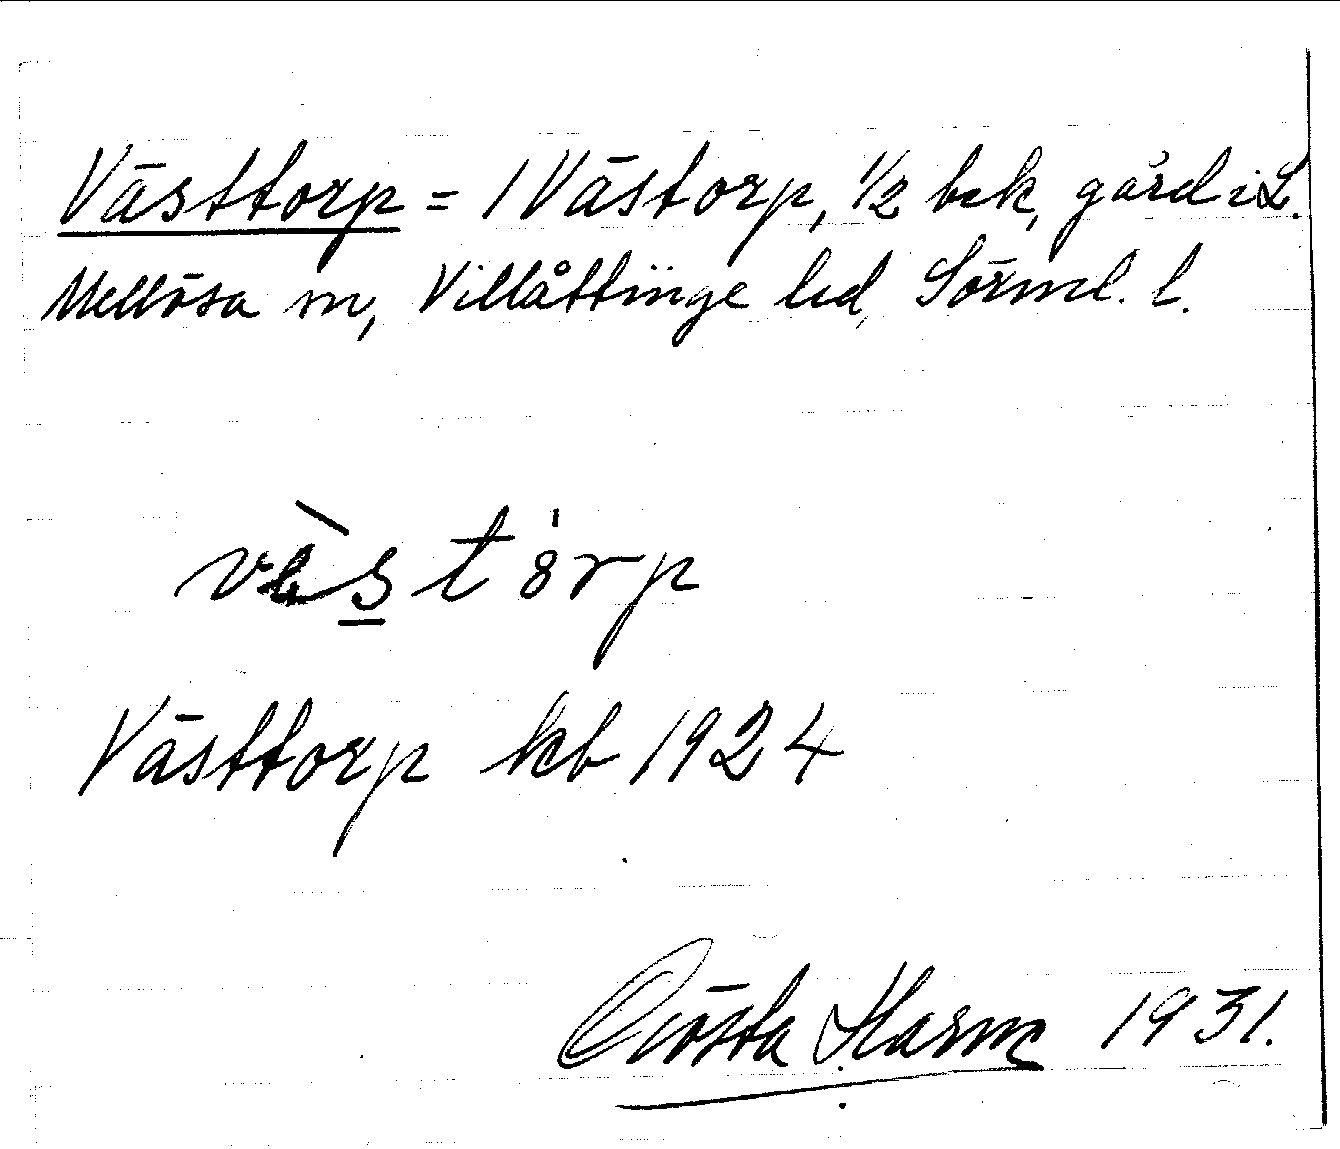 Västtorp = 1 Västorp, 1/2 bek, gård i L.
Mellösa sn, Villåttinge hd, Sörml. l.
vèstȯrp
Västtorp kb 1924
Gösta 1931.